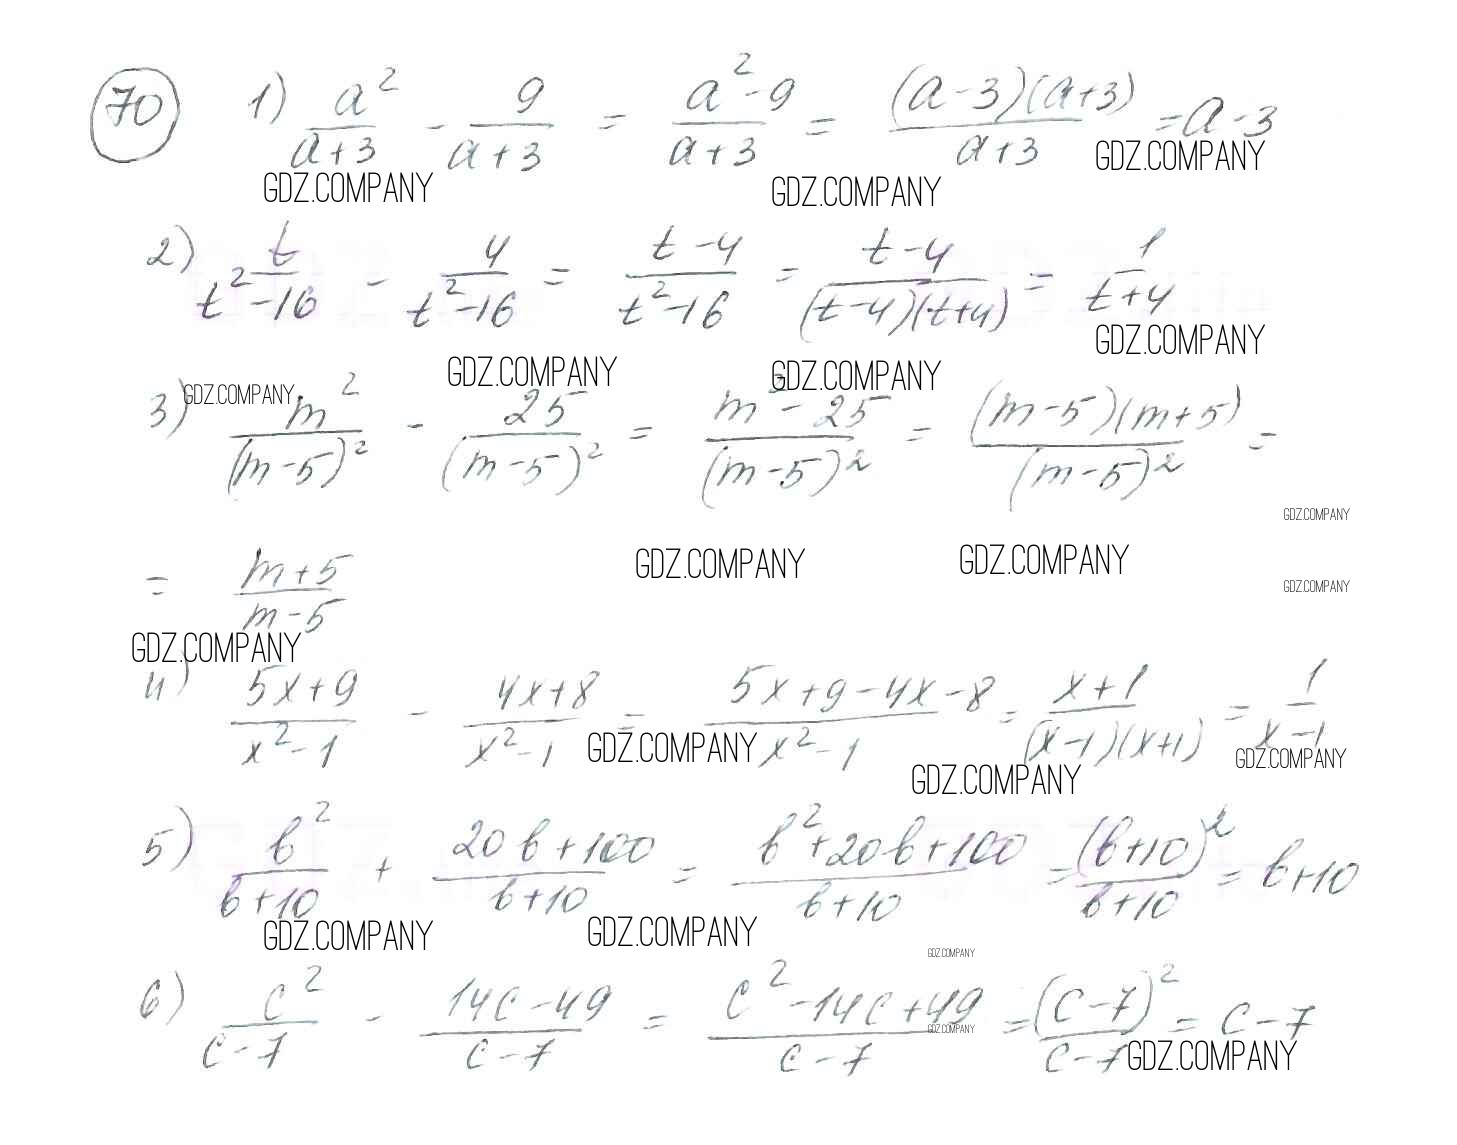 70 1) a²/(a+3) - 9/(a+3) = (a²-9)/(a+3) = (a-3)(a+3)/(a+3) = a-3
GDZ.COMPANY GDZ.COMPANY GDZ.COMPANY
2) t/(t²-16) - 4/(t²-16) = (t-4)/(t²-16) = (t-4)/((t-4)(t+4)) = 1/(t+4)
GDZ.COMPANY GDZ.COMPANY GDZ.COMPANY
3) GDZ.COMPANY m²/(m-5)² - 25/(m-5)² = (m²-25)/(m-5)² = (m-5)(m+5)/(m-5)² =
GDZ.COMPANY
= (m+5)/(m-5) GDZ.COMPANY GDZ.COMPANY GDZ.COMPANY
GDZ.COMPANY
4) (5x+9)/(x²-1) - (4x+8)/(x²-1) = (5x+9-4x-8)/(x²-1) = (x+1)/((x-1)(x+1)) = 1/(x-1)
GDZ.COMPANY GDZ.COMPANY GDZ.COMPANY
5) b²/(b+10) + (20b+100)/(b+10) = (b²+20b+100)/(b+10) = (b+10)²/(b+10) = b+10
GDZ.COMPANY GDZ.COMPANY GDZ.COMPANY
6) c²/(c-7) - (14c-49)/(c-7) = (c²-14c+49)/(c-7) = (c-7)²/(c-7) = c-7
GDZ.COMPANY GDZ.COMPANY